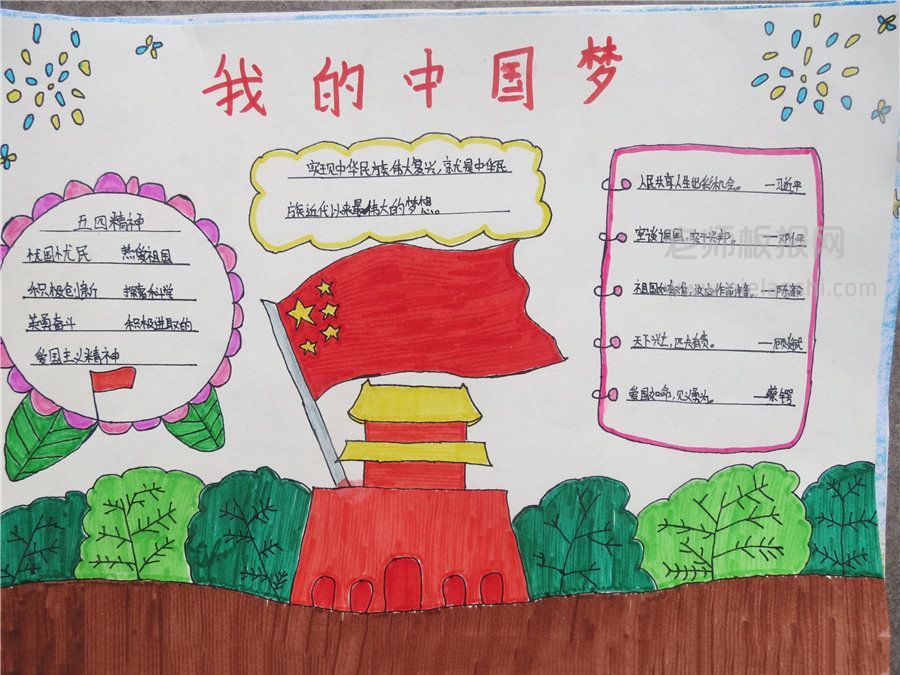 我的中国梦
实现中华民族伟大复兴，就是中华民
族近代以来最伟大的梦想。
五四精神
忧国忧民 热爱祖国
积极创新 探索科学
英勇奋斗 积极进取的
爱国主义精神
人民共享人生出彩机会。 —习近平
空谈误国，实干兴邦。
祖国如有难，
天下兴亡，匹夫有责。
爱国如命，见义勇为。 —蔡锷
老师板报网